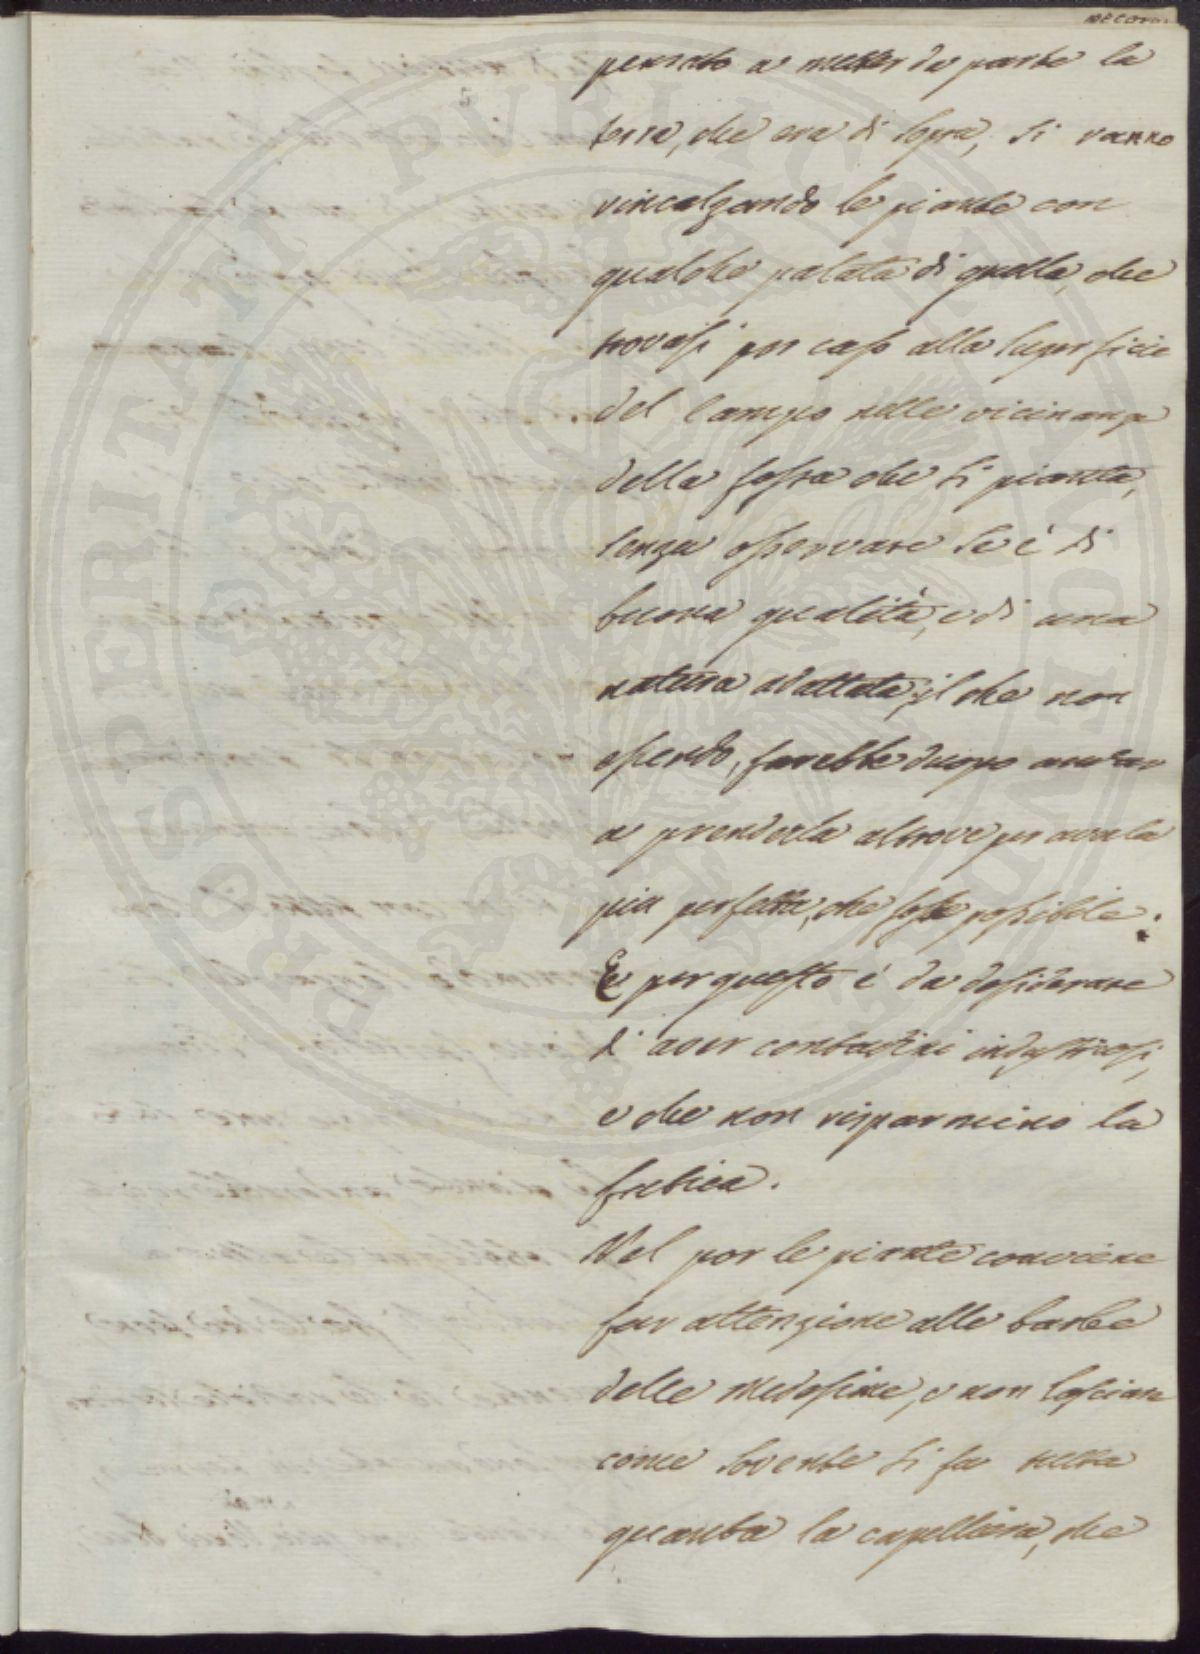 pensato a metter da parte la
terra, che era di sopra, si vanno
rincalzando le piante con
qualche palata di quella, che
trovasi per caso alla superficie
del Campo nelle vicinanze
della fossa che si pianta,
senza osservare se è di
buona qualità, e di una
natura adattata, il che non
essendo, farebbe duopo andar
a prenderla altrove per averla
più perfetta, che fosse possibile.
E per questo è da desiderare
di aver contadini industriosi,
e che non risparmino la
fatica.
Nel por le piante conviene
far attenzione alle barbe
delle medesime, e non lasciare
come sovente si fa tutta
quanta la capelliera, che
PROSPERITATI PVBLICAE AVGENDAE